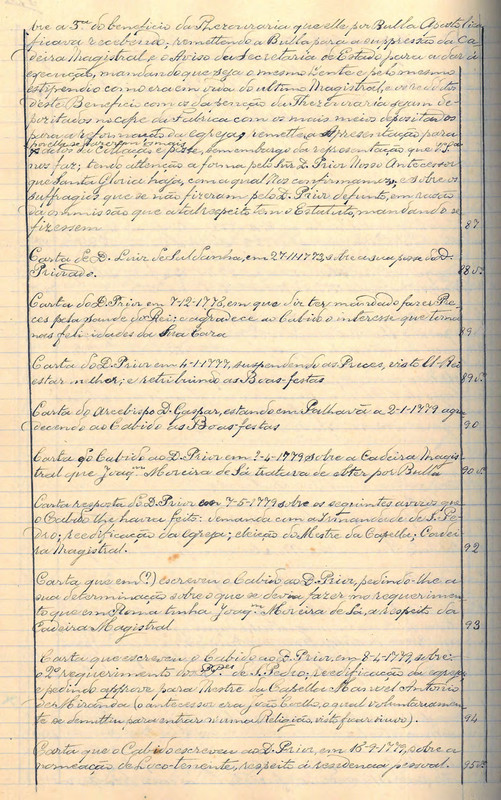 bre a 5ª do beneficio da Thezouraria que elle por Bulla Apostolica
ficava recebendo, remettendo a Bulla para a suppressão da Ca-
deira Magistral e o Aviso da Secretaria de Estado para a dar á
execução, mandando que seja o mesmo Lente e pelo mesmo
estipendio como era em vida do ultimo Magistral, e os redditos
deste Beneficio com os da pensão da Thezouraria sejam de-
positados no cofre da Fabrica com os mais meios depositados
para a reforma só da egreja; remette a Apresentação para
nos faz; tendo attenção a forma pelo Snr. D. Prior Nosso Antecessor
que Santa Gloria haja, com a qual Nos confirmamos; e sobre os
suffragios que se não fizeram pelo D. Prior defunto, em razão
da ommissão que a tal respeito tem o Estatuto, mandando se
fizessem 87
Carta de D. Luiz de Saldanha, em 27-11-1773, sobre a sua posse do D.
Priorado. 88 vº
Carta do D. Prior em 7-12-1778, em que diz ter mandado fazer Pre-
ces pela saude do Rei; e agradece ao Cabido o interesse que toma
nas felicidades da Sua Caza 89
Carta do D. Prior em 4-1-1777, suspendendo as Preces, visto El-Rei
estar melhor; e retribuindo as Boas-festas 89 vº
Carta do Arcebispo D. Gaspar, estando em Palhavã a 2-1-1779 agra-
decendo ao Cabido as Boas-festas 90
Carta do Cabido ao D. Prior em 2-4-1779 sobre a Cadeira Magis-
tral que Joaqm Moreira de Sá tratava de obter por Bulla 90 vº
Carta resposta do D. Prior em 7-5-1779 sobre os seguintes avizos que
o Cabido lhe havia feito: demanda com a Irmandade de S. Pe-
dro; reedificação da Igreja; eleição do Mestre da Capella; Cadei-
ra Magistral. 92
Carta que em (?) escreveu o Cabido ao D. Prior, pedindo-lhe a
sua determinação sobre o que se devia fazer no requerimen-
to que em Roma tinha Joaqm Moreira de Sá, a respeito da
Cadeira Magistral 93
Carta que escreveu o Cabido ao D. Prior, em 8-4-1779, sobre:
o 2º requerimento dos de S. Pedro; reedificação da egreja
e pedindo approve para Mestre da Capella Manoel Antonio
de Miranda (o antecessor era João Coelho, o qual voluntariamen-
te se demittiu para entrar n'uma Religião, visto ficar viuvo). 94
Carta que o Cabido escreveu ao D. Prior, em 15-9-1779, sobre a
nomeação de Loco-tenente, respeito á residencia pessoal. 95 vº